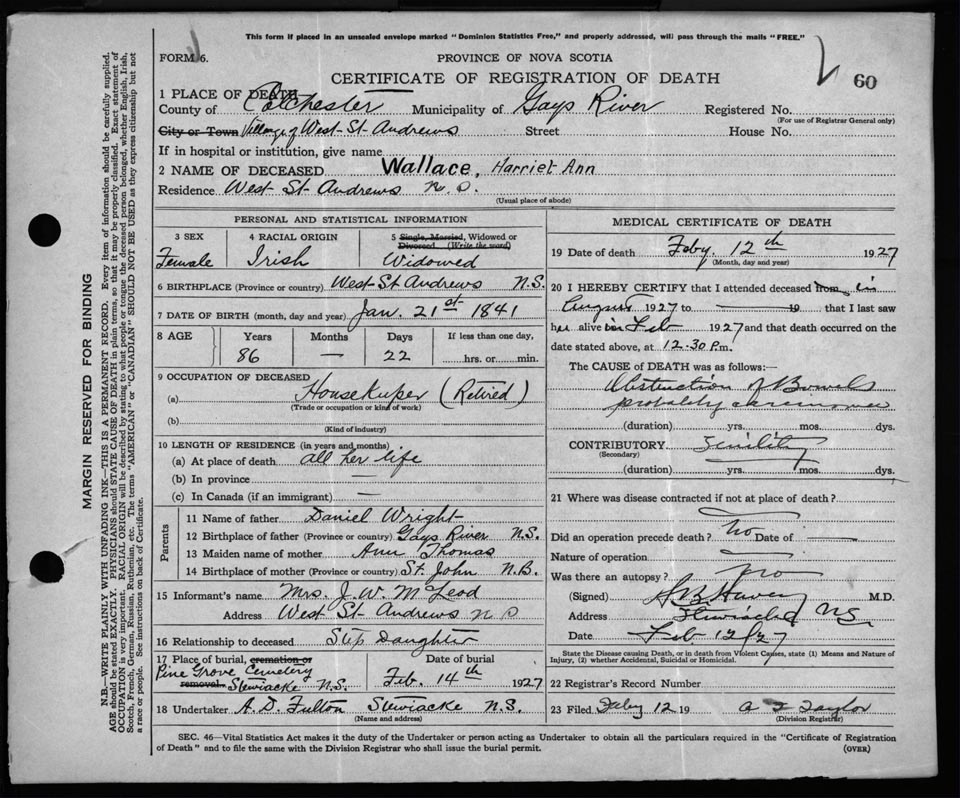 This form if placed in an unsealed envelope marked "Dominion Statistics Free," and properly addressed, will pass through the mails "FREE."
FORM 6.
PROVINCE OF NOVA SCOTIA
CERTIFICATE OF REGISTRATION OF DEATH
60
1 PLACE OF DEATH
County of Colchester Municipality of Gays River Registered No.
(For use of Registrar General only)
City or Town Village of West St. Andrews Street House No.
If in hospital or institution, give name
2 NAME OF DECEASED Wallace, Harriet Ann
Residence West St Andrews N.S.
(Usual place of abode)
PERSONAL AND STATISTICAL INFORMATION
3 SEX 4 RACIAL ORIGIN 5 Single, Married, Widowed or
Divorced. (Write the word)
Female Irish Widowed
6 BIRTHPLACE (Province or country) West St Andrews N.S.
7 DATE OF BIRTH (month, day and year) Jan. 21st 1841
8 AGE Years Months Days If less than one day,
86 — 22 hrs. or min.
9 OCCUPATION OF DECEASED
(a) Housekeeper (Retired)
(Trade or occupation or kind of work)
(b)
(Kind of industry)
10 LENGTH OF RESIDENCE (in years and months)
(a) At place of death all her life
(b) In province —
(c) In Canada (if an immigrant) —
Parents
11 Name of father Daniel Wright
12 Birthplace of father (Province or country) Gays River N.S.
13 Maiden name of mother Ann Thomas
14 Birthplace of mother (Province or country) St. John N.B.
15 Informant's name Mrs. J. W. McLeod
Address West St Andrews N S
16 Relationship to deceased Step Daughter
17 Place of burial, cremation or Date of burial
Pine Grove Cemetery
removal. Stewiacke N.S. Feb. 14th 1927
18 Undertaker A. D. Fulton Stewiacke N.S.
(Name and address)
MEDICAL CERTIFICATE OF DEATH
19 Date of death Feby. 12th 1927
(Month, day and year)
20 I HEREBY CERTIFY that I attended deceased from in
August 1927 to 19 that I last saw
her alive in Feb 1927 and that death occurred on the
date stated above, at 12.30 P.m.
The CAUSE OF DEATH was as follows:—
Obstruction of Bowels
probably carcinoma
(duration) yrs. mos. dys.
CONTRIBUTORY Senility
(Secondary)
(duration) yrs. mos. dys.
21 Where was disease contracted if not at place of death?
Did an operation precede death? No Date of
Nature of operation
Was there an autopsy? no
(Signed) M.D.
Address Stewiacke N.S.
Date Feb 12/27
State the Disease causing Death, or in death from Violent Causes, state (1) Means and Nature of
Injury, (2) whether Accidental, Suicidal or Homicidal.
22 Registrar's Record Number
23 Filed Feby 12 19 Taylor
(Division Registrar)
SEC. 46—Vital Statistics Act makes it duty of the Undertaker or person acting as Undertaker to obtain all the particulars required in the "Certificate of Registration
of Death" and to file the same with the Division Registrar who shall issue the burial permit. (OVER)
MARGIN RESERVED FOR BINDING
N.B.—WRITE PLAINLY WITH UNFADING INK—THIS IS A PERMANENT RECORD. Every item of information should be carefully supplied.
AGE should be stated EXACTLY. PHYSICIANS should STATE CAUSE OF DEATH in plain terms, so that it may be properly classified. Exact statement of
OCCUPATION is very important. RACIAL ORIGIN will be described by stating to what people or tongue the deceased person belonged, whether English, Irish,
Scotch, French, German, Russian, Ruthenian, etc. The terms "AMERICAN" or "CANADIAN" SHOULD NOT BE USED as they express citizenship but not
a race or people. See instructions on back of Certificate.